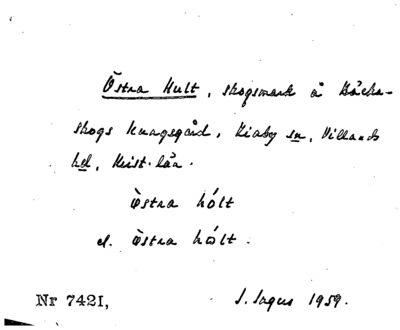 Östra Hult, skogsmark å Bäcka-
skogs kungsgård, Kiaby sn, Villands
hd, Krist. län.
östra hólt
el. östra hóolt.
Nr 7421, S. Ingers 1959.